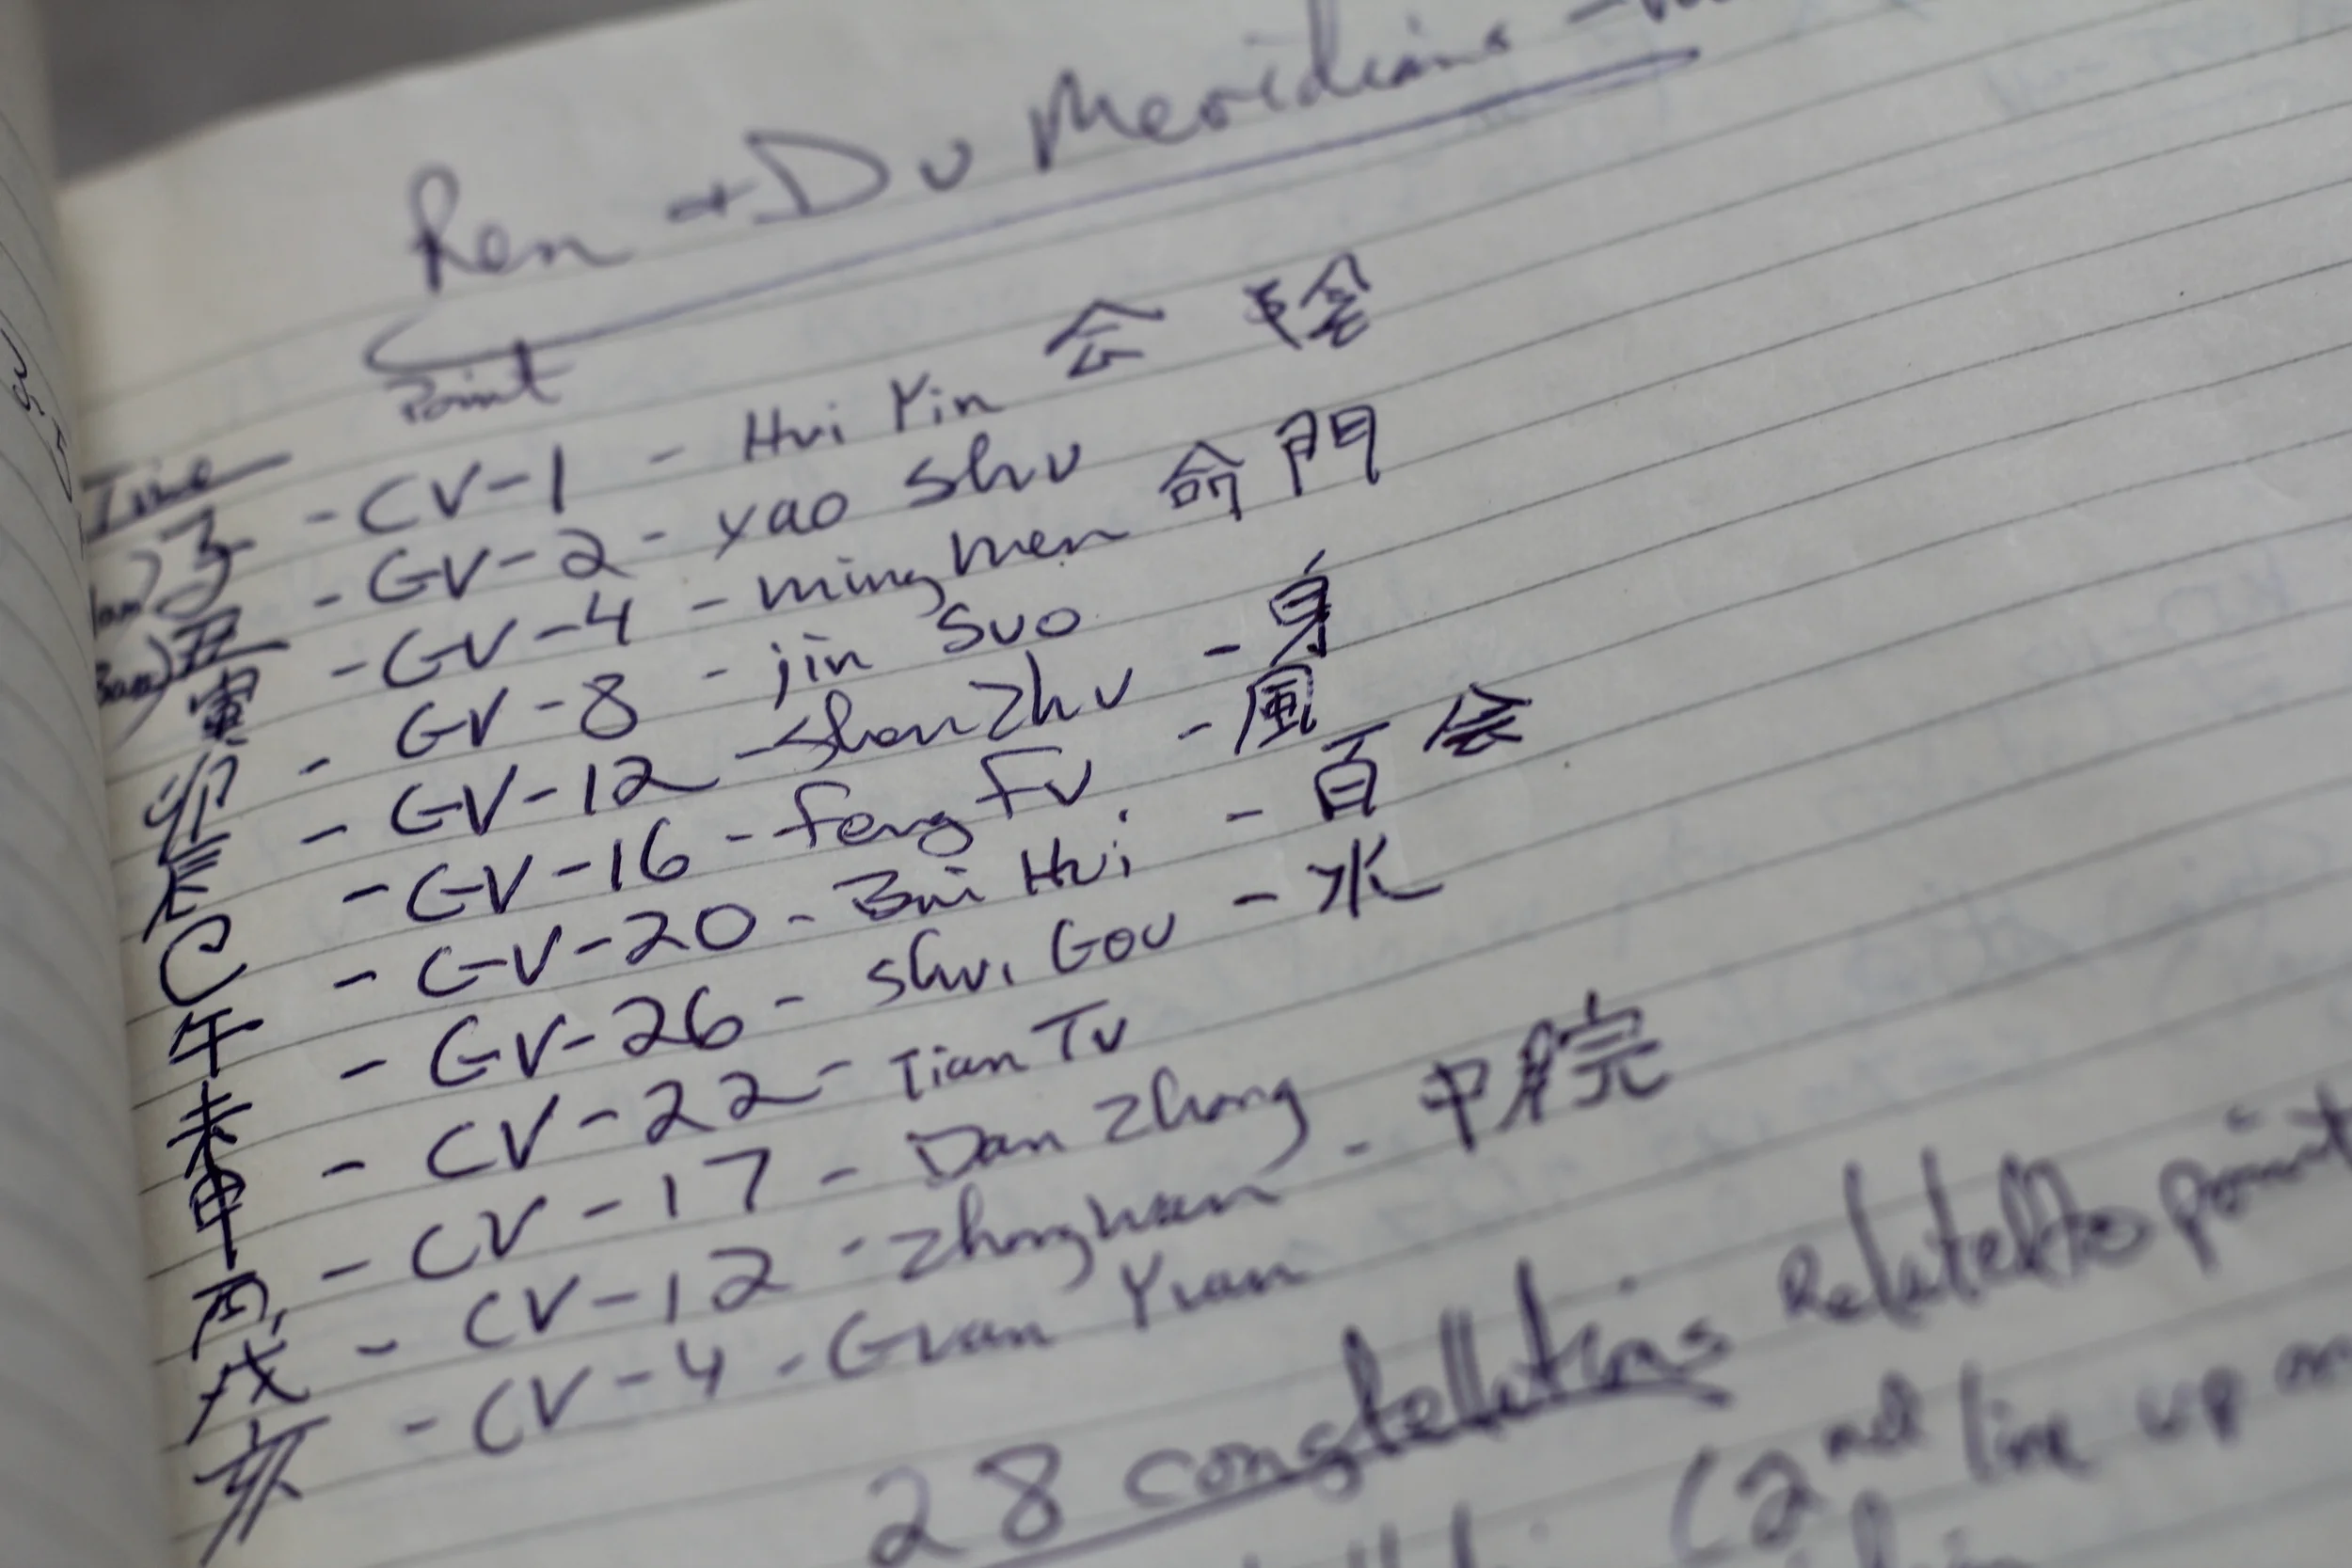 Ren + Du Meridians -
Time Point
子 - CV-1 - Hui Yin 会 陰
丑 - GV-2 - Yao Shu
寅 - GV-4 - ming men 命 門
卯 - GV-8 - jin Suo
辰 - GV-12 - Shen Zhu - 身
巳 - GV-16 - Feng Fu - 風
午 - GV-20 - Bai Hui - 百 会
未 - GV-26 - Shui Gou - 水
申 - CV-22 - Tian Tu
酉 - CV-17 - Dan Zhong
戌 - CV-12 - Zhongwan - 中 脘
亥 - CV-4 - Guan Yuan
28 constellations Related to point
(2nd line up on